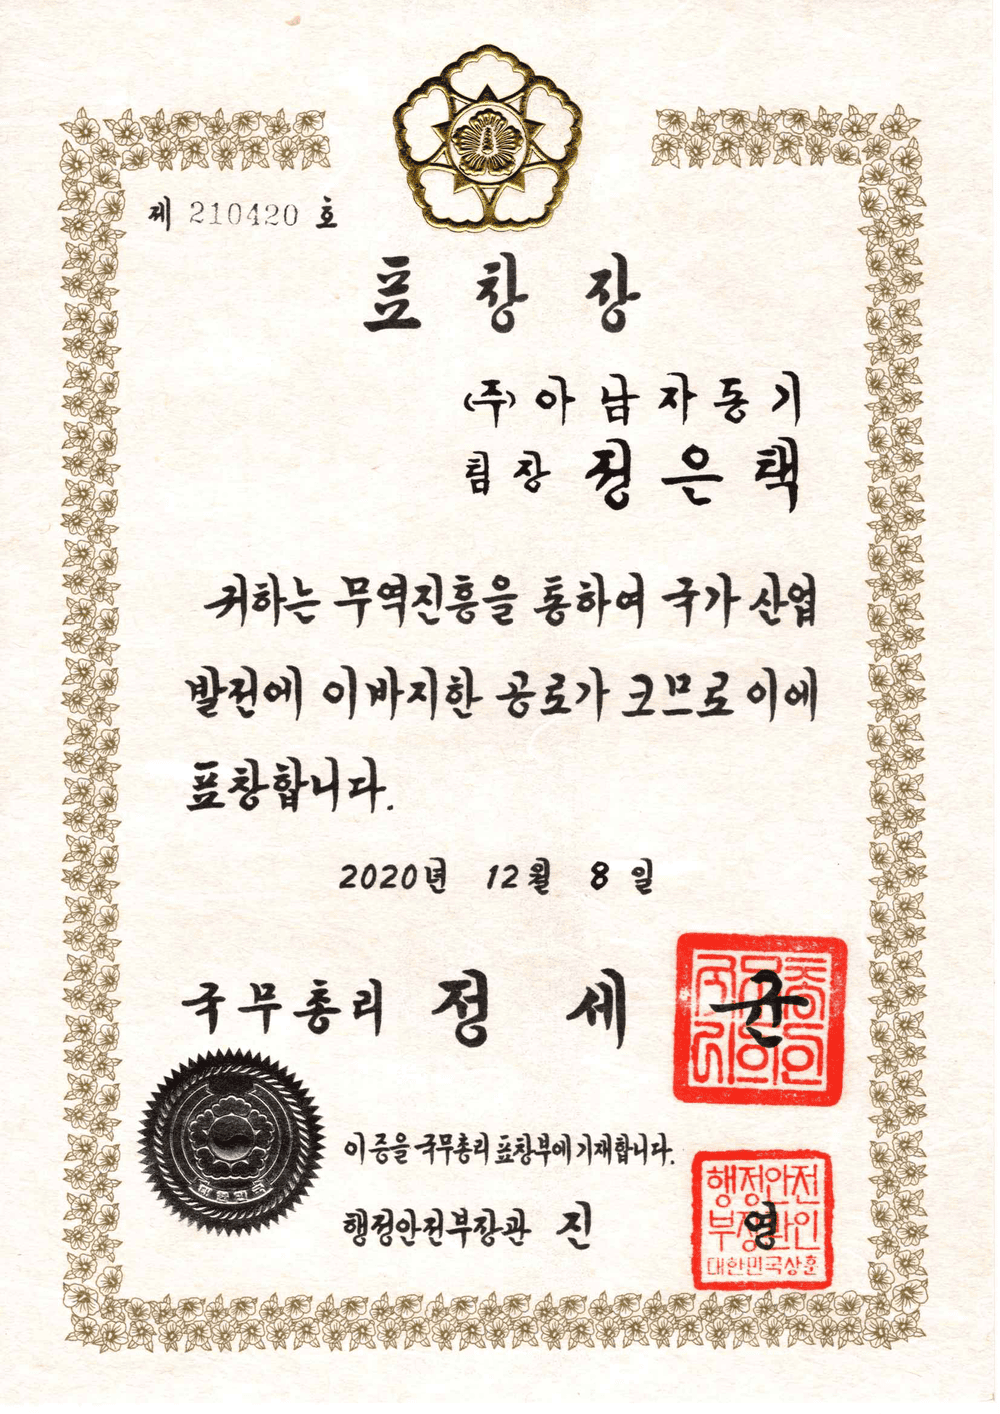 제 210420 호
표 창 장
(주) 아 남 자 동 기
팀 장 정 은 택
귀하는 무역진흥을 통하여 국가 산업
발전에 이바지한 공로가 크므로 이에
표창합니다.
2020년 12월 8일
국무총리 정 세 균
국무총리의인
대한민국
이 증을 국무총리 표창부에 기재합니다.
행정안전부장관 진 영
행정안전
부장관인
대한민국상훈